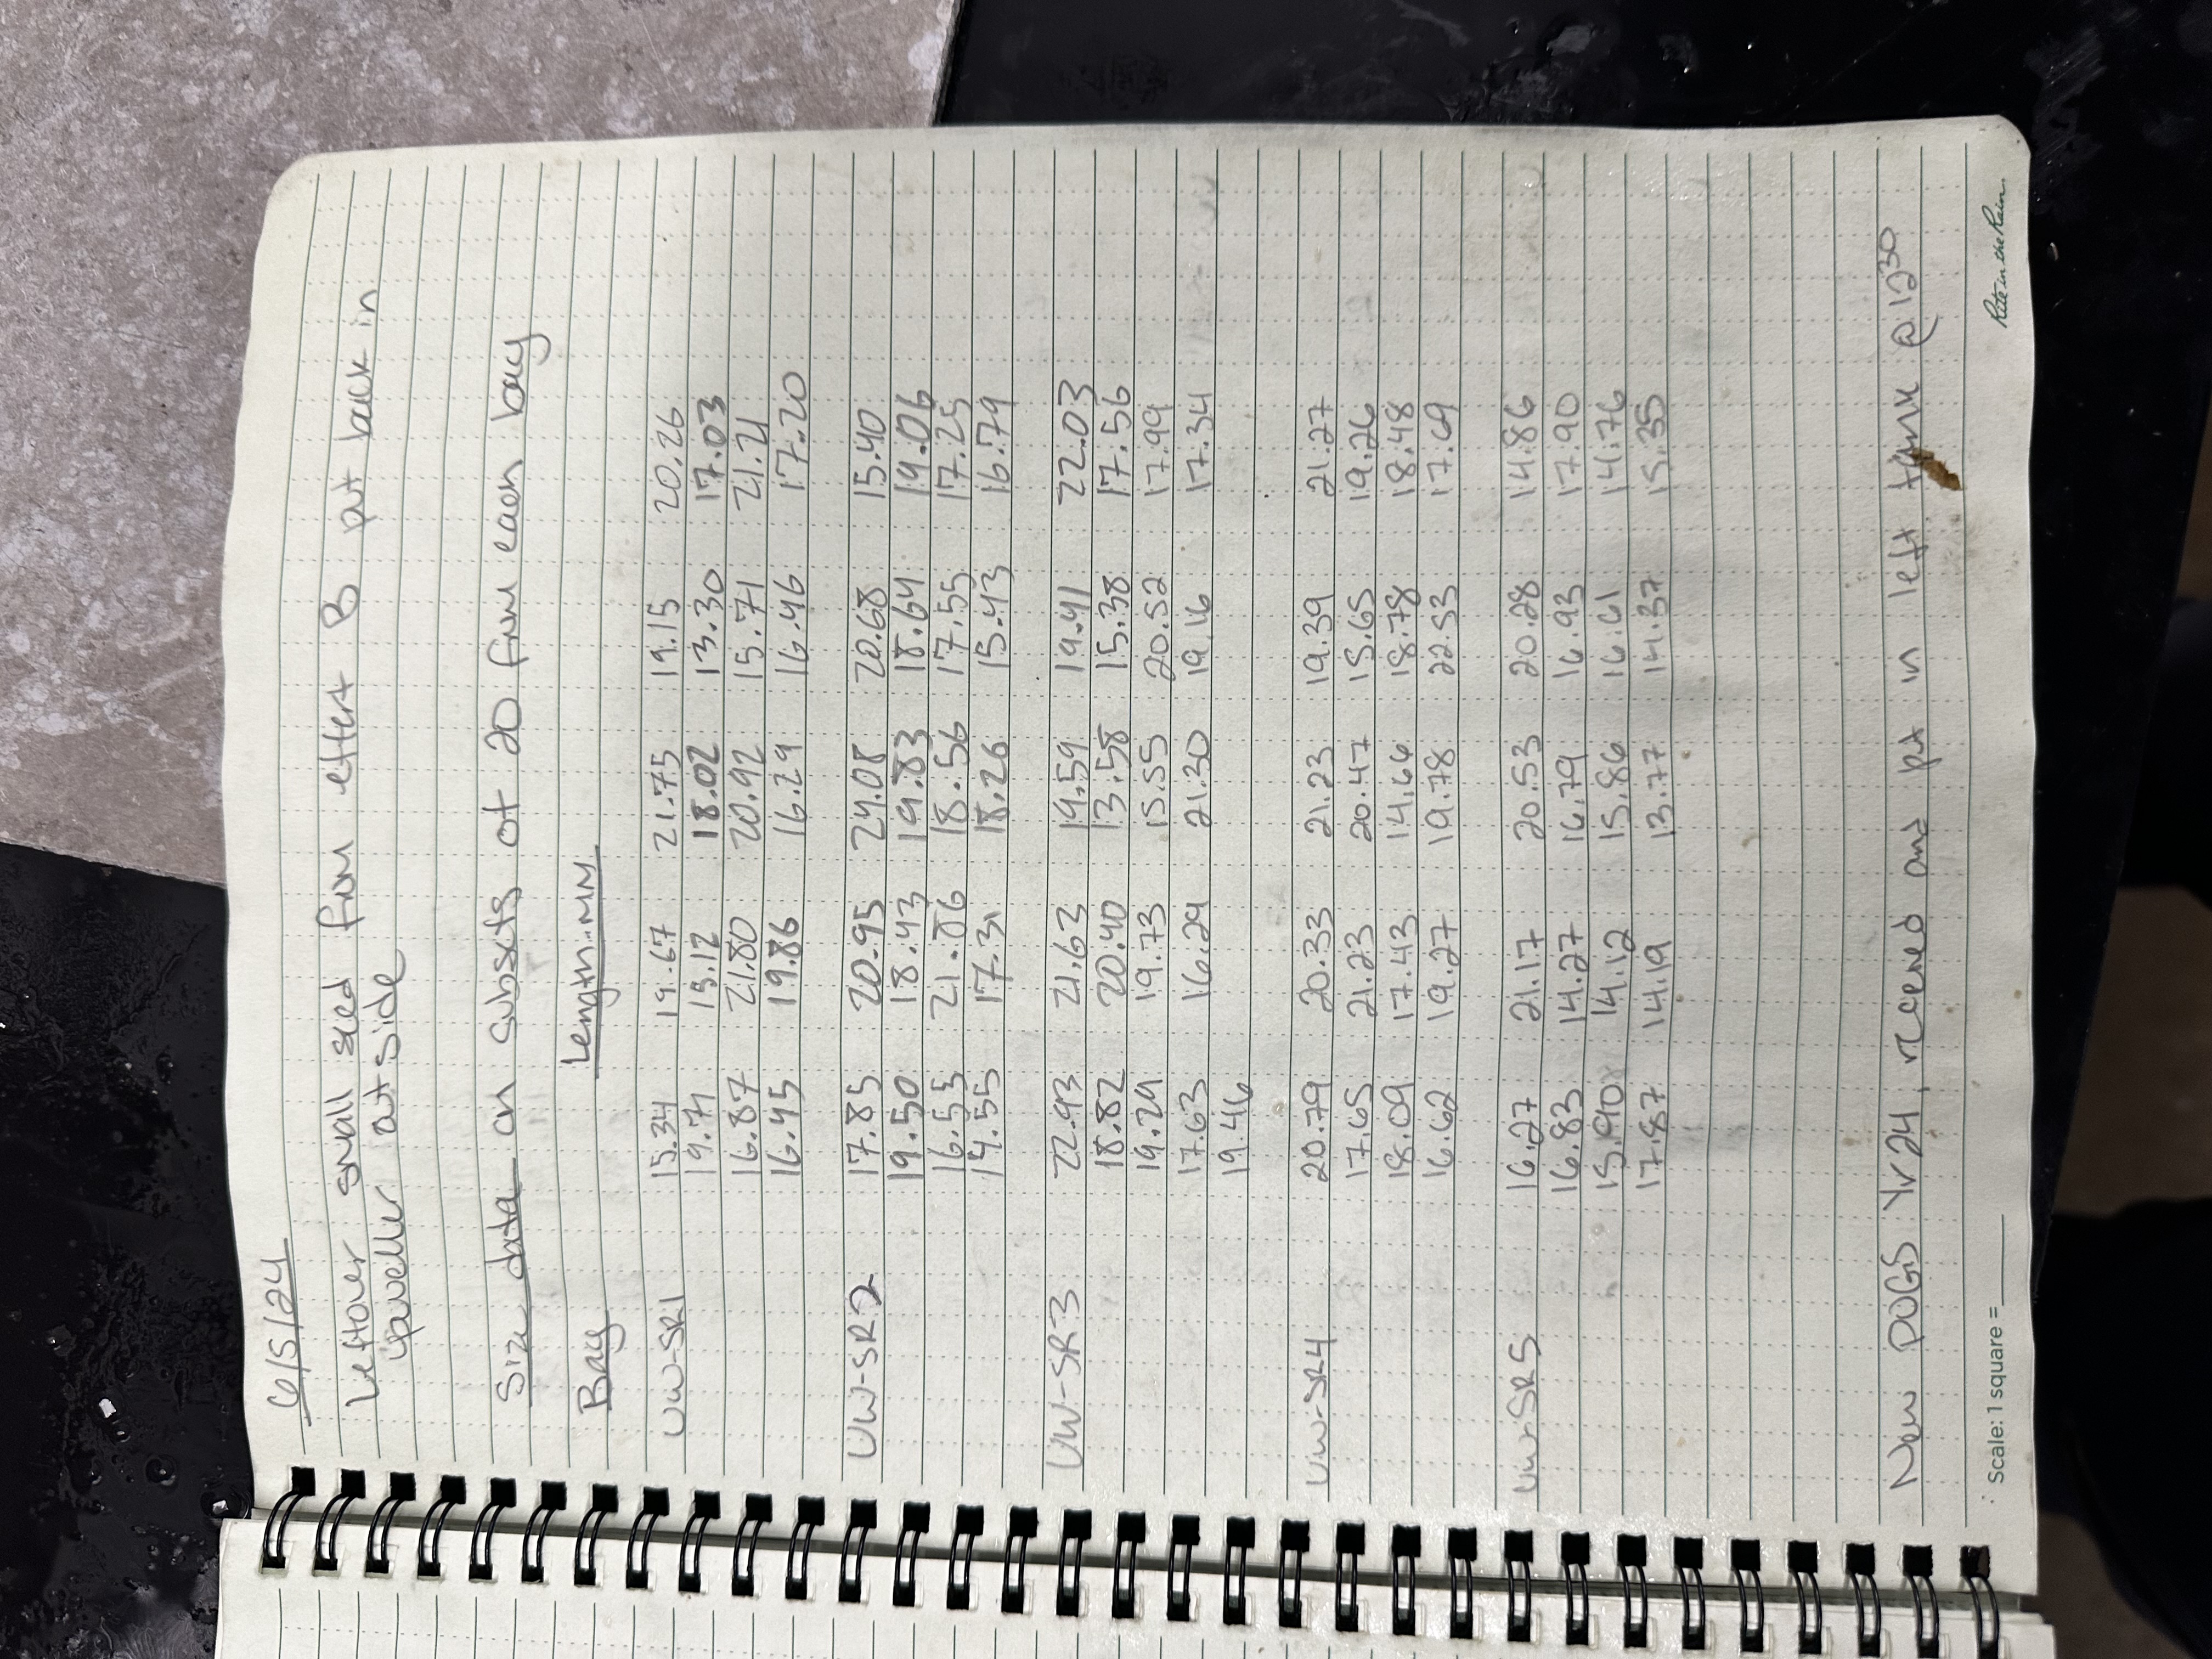 6/5/24
Leftover small seed from effort B put back in
upweller outside
Size data on subsets of 20 from each bag
Bag Length-mm
UW-SR1 15.34 19.67 21.75 19.15 20.26
19.71 15.12 18.02 13.30 17.03
16.87 21.80 20.92 15.71 21.21
16.45 19.86 16.29 16.46 17.20
UW-SR2 17.85 20.95 24.08 20.68 15.40
19.50 18.43 19.83 18.64 19.06
16.55 21.06 18.56 17.55 17.25
14.55 17.31 18.26 15.43 16.79
UW-SR3 22.93 21.63 19.59 19.41 22.03
18.82 20.40 13.58 15.38 17.56
19.29 19.73 15.55 20.52 17.99
17.63 16.29 21.30 19.16 17.34
19.46
UW-SR4 20.79 20.33 21.23 19.39 21.27
17.65 21.23 20.47 15.65 19.26
18.09 17.43 14.66 18.78 18.48
16.62 19.27 19.78 22.53 17.69
UW-SR5 16.27 21.17 20.53 20.28 14.86
16.83 14.27 16.79 16.93 17.90
15.90 14.12 15.86 16.61 14.76
17.87 14.19 13.77 14.37 15.35
New POGS Yr24, received and put in left tank @ 1230
Scale: 1 square =______ Rite in the Rain